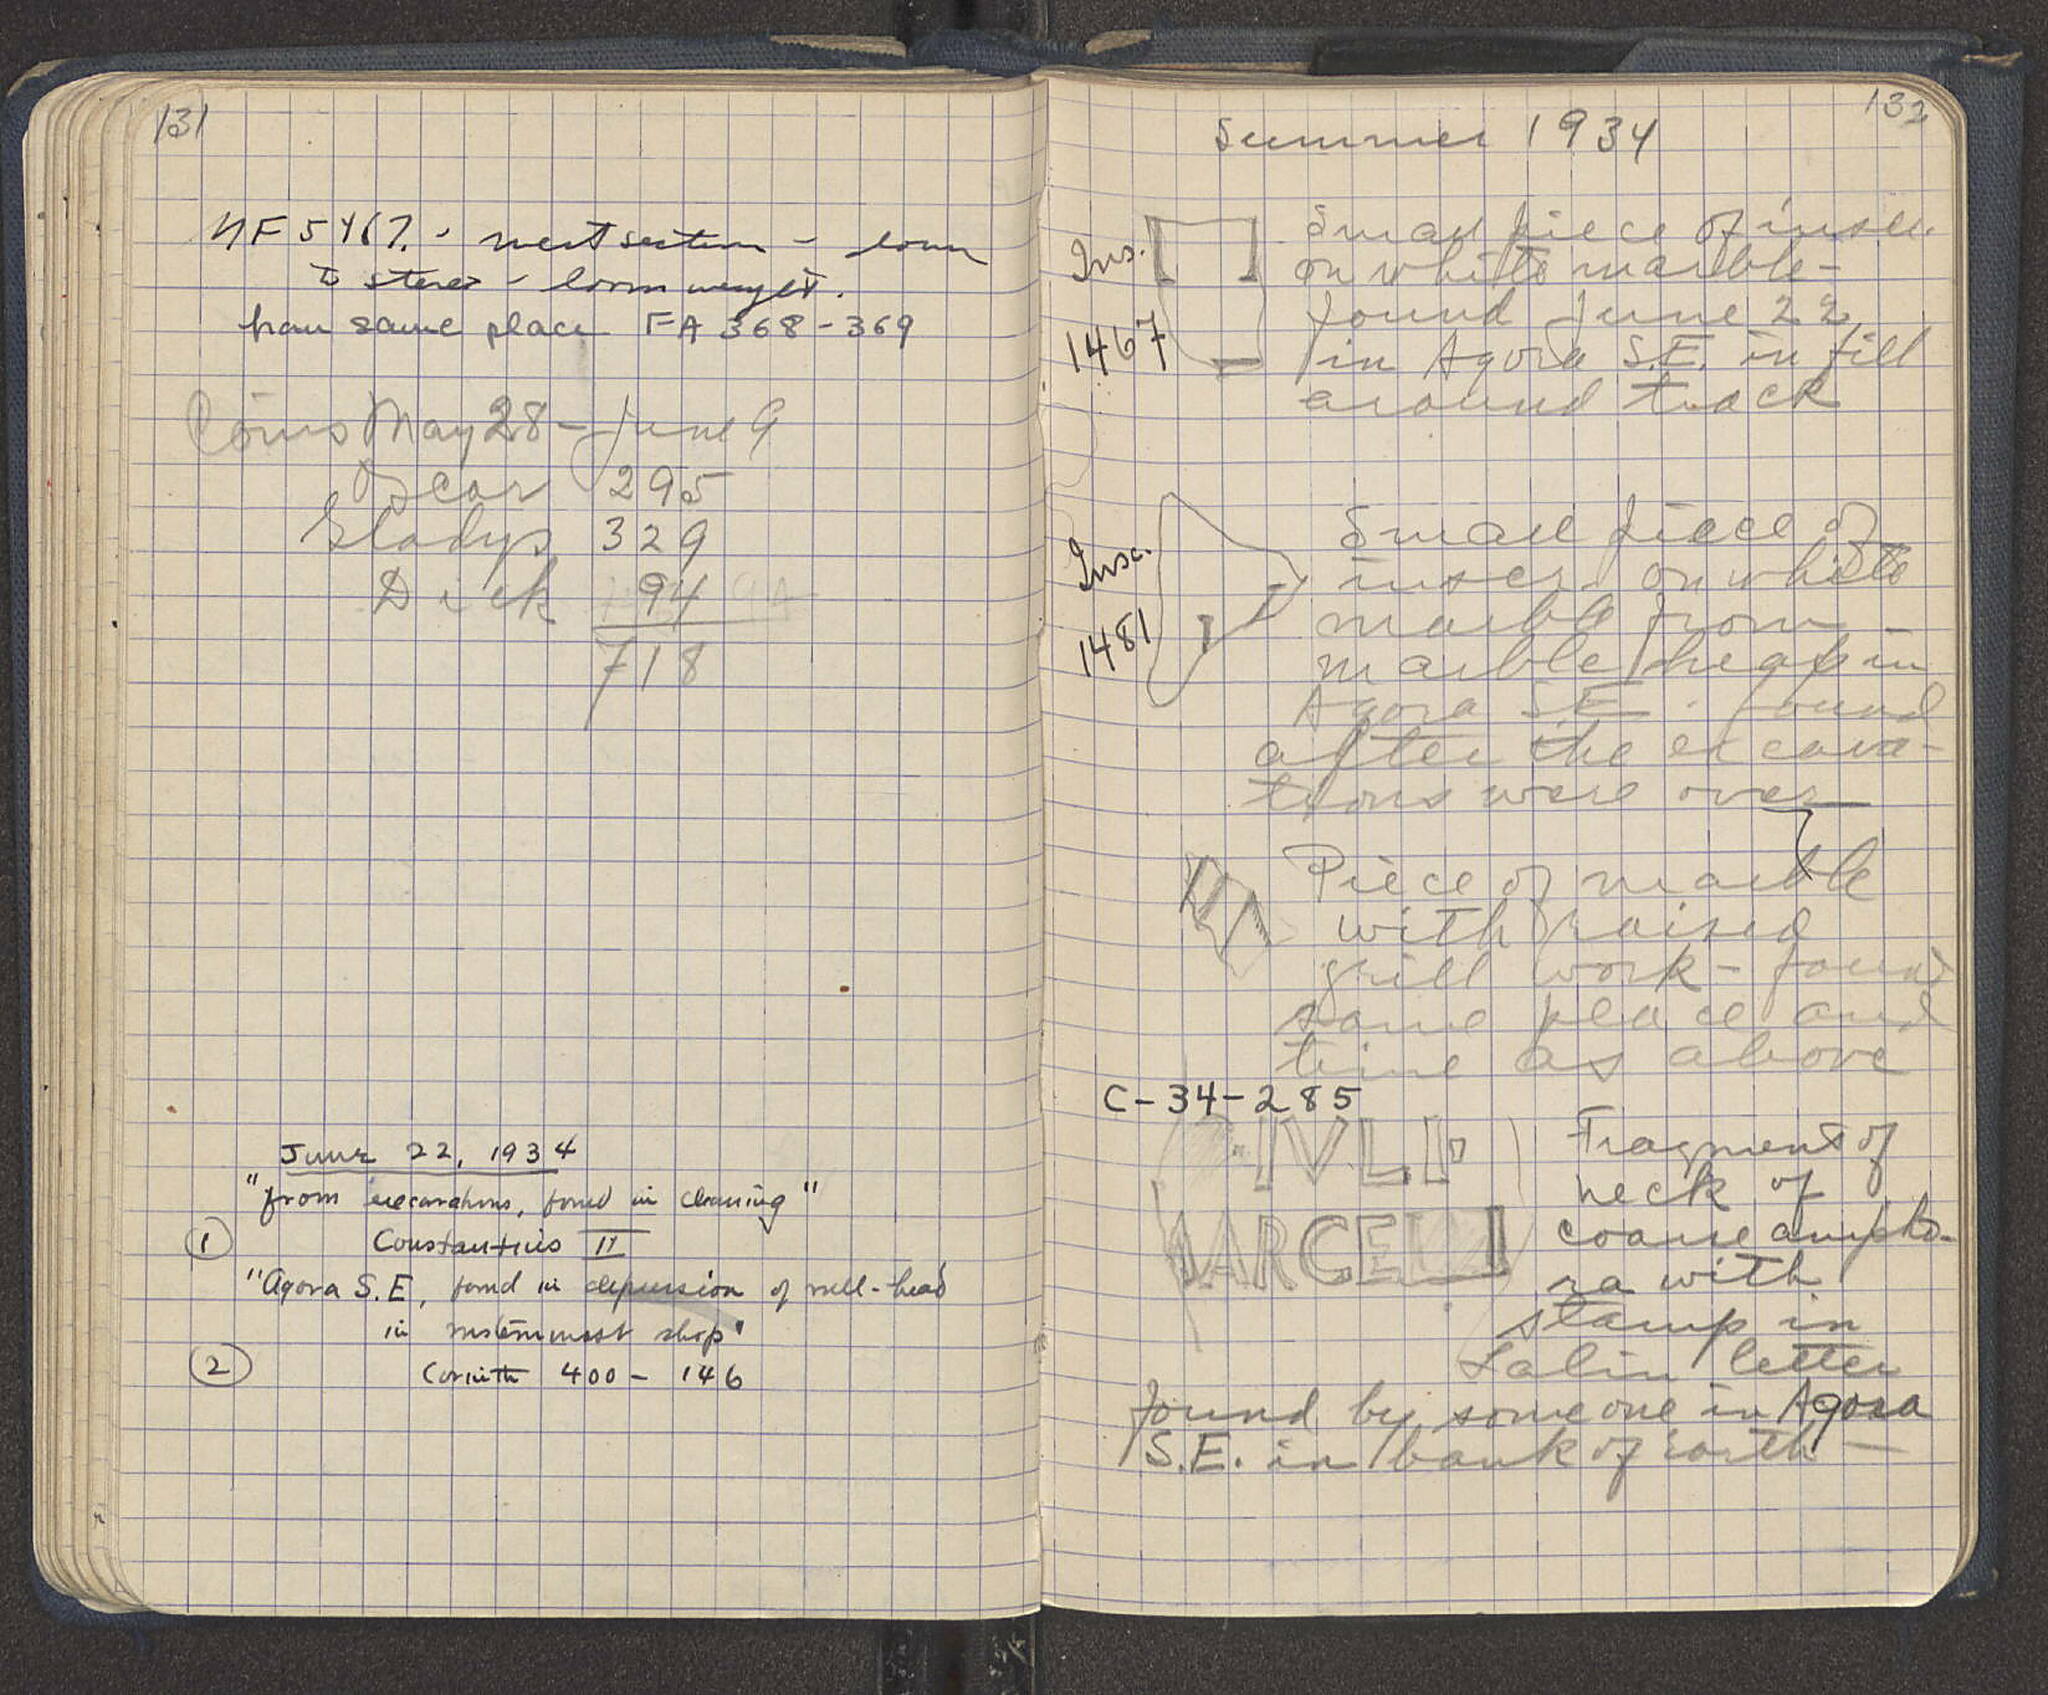 131
NF 5467. - west section - down
to stereo - loom weight.
from same place FA 368-369
Coins May 28 - June 9
Oscar 295
Gladys 329
Dick 94
718
June 22, 1934
"from excavations, found in cleaning"
① Constantius II
"Agora S.E, found in depression of well-head
in westernmost shop"
② Corinth 400 - 146
132
Summer 1934
Ins.
1467
Small piece of inscr.
on white marble -
found June 22
in Agora S.E. in fill
around track
Insc.
1481
Small piece of
inscr. on white
marble from
marble heap in
Agora S.E. found
after the excava-
tions were over
Piece of marble
with raised
grill work - found
same place and
time as above
C-34-285
IVLI
ARCEL
Fragment of
neck of
coarse ampho-
ra with
stamp in
Latin letter
found by someone in Agora
S.E. in bank of earth -